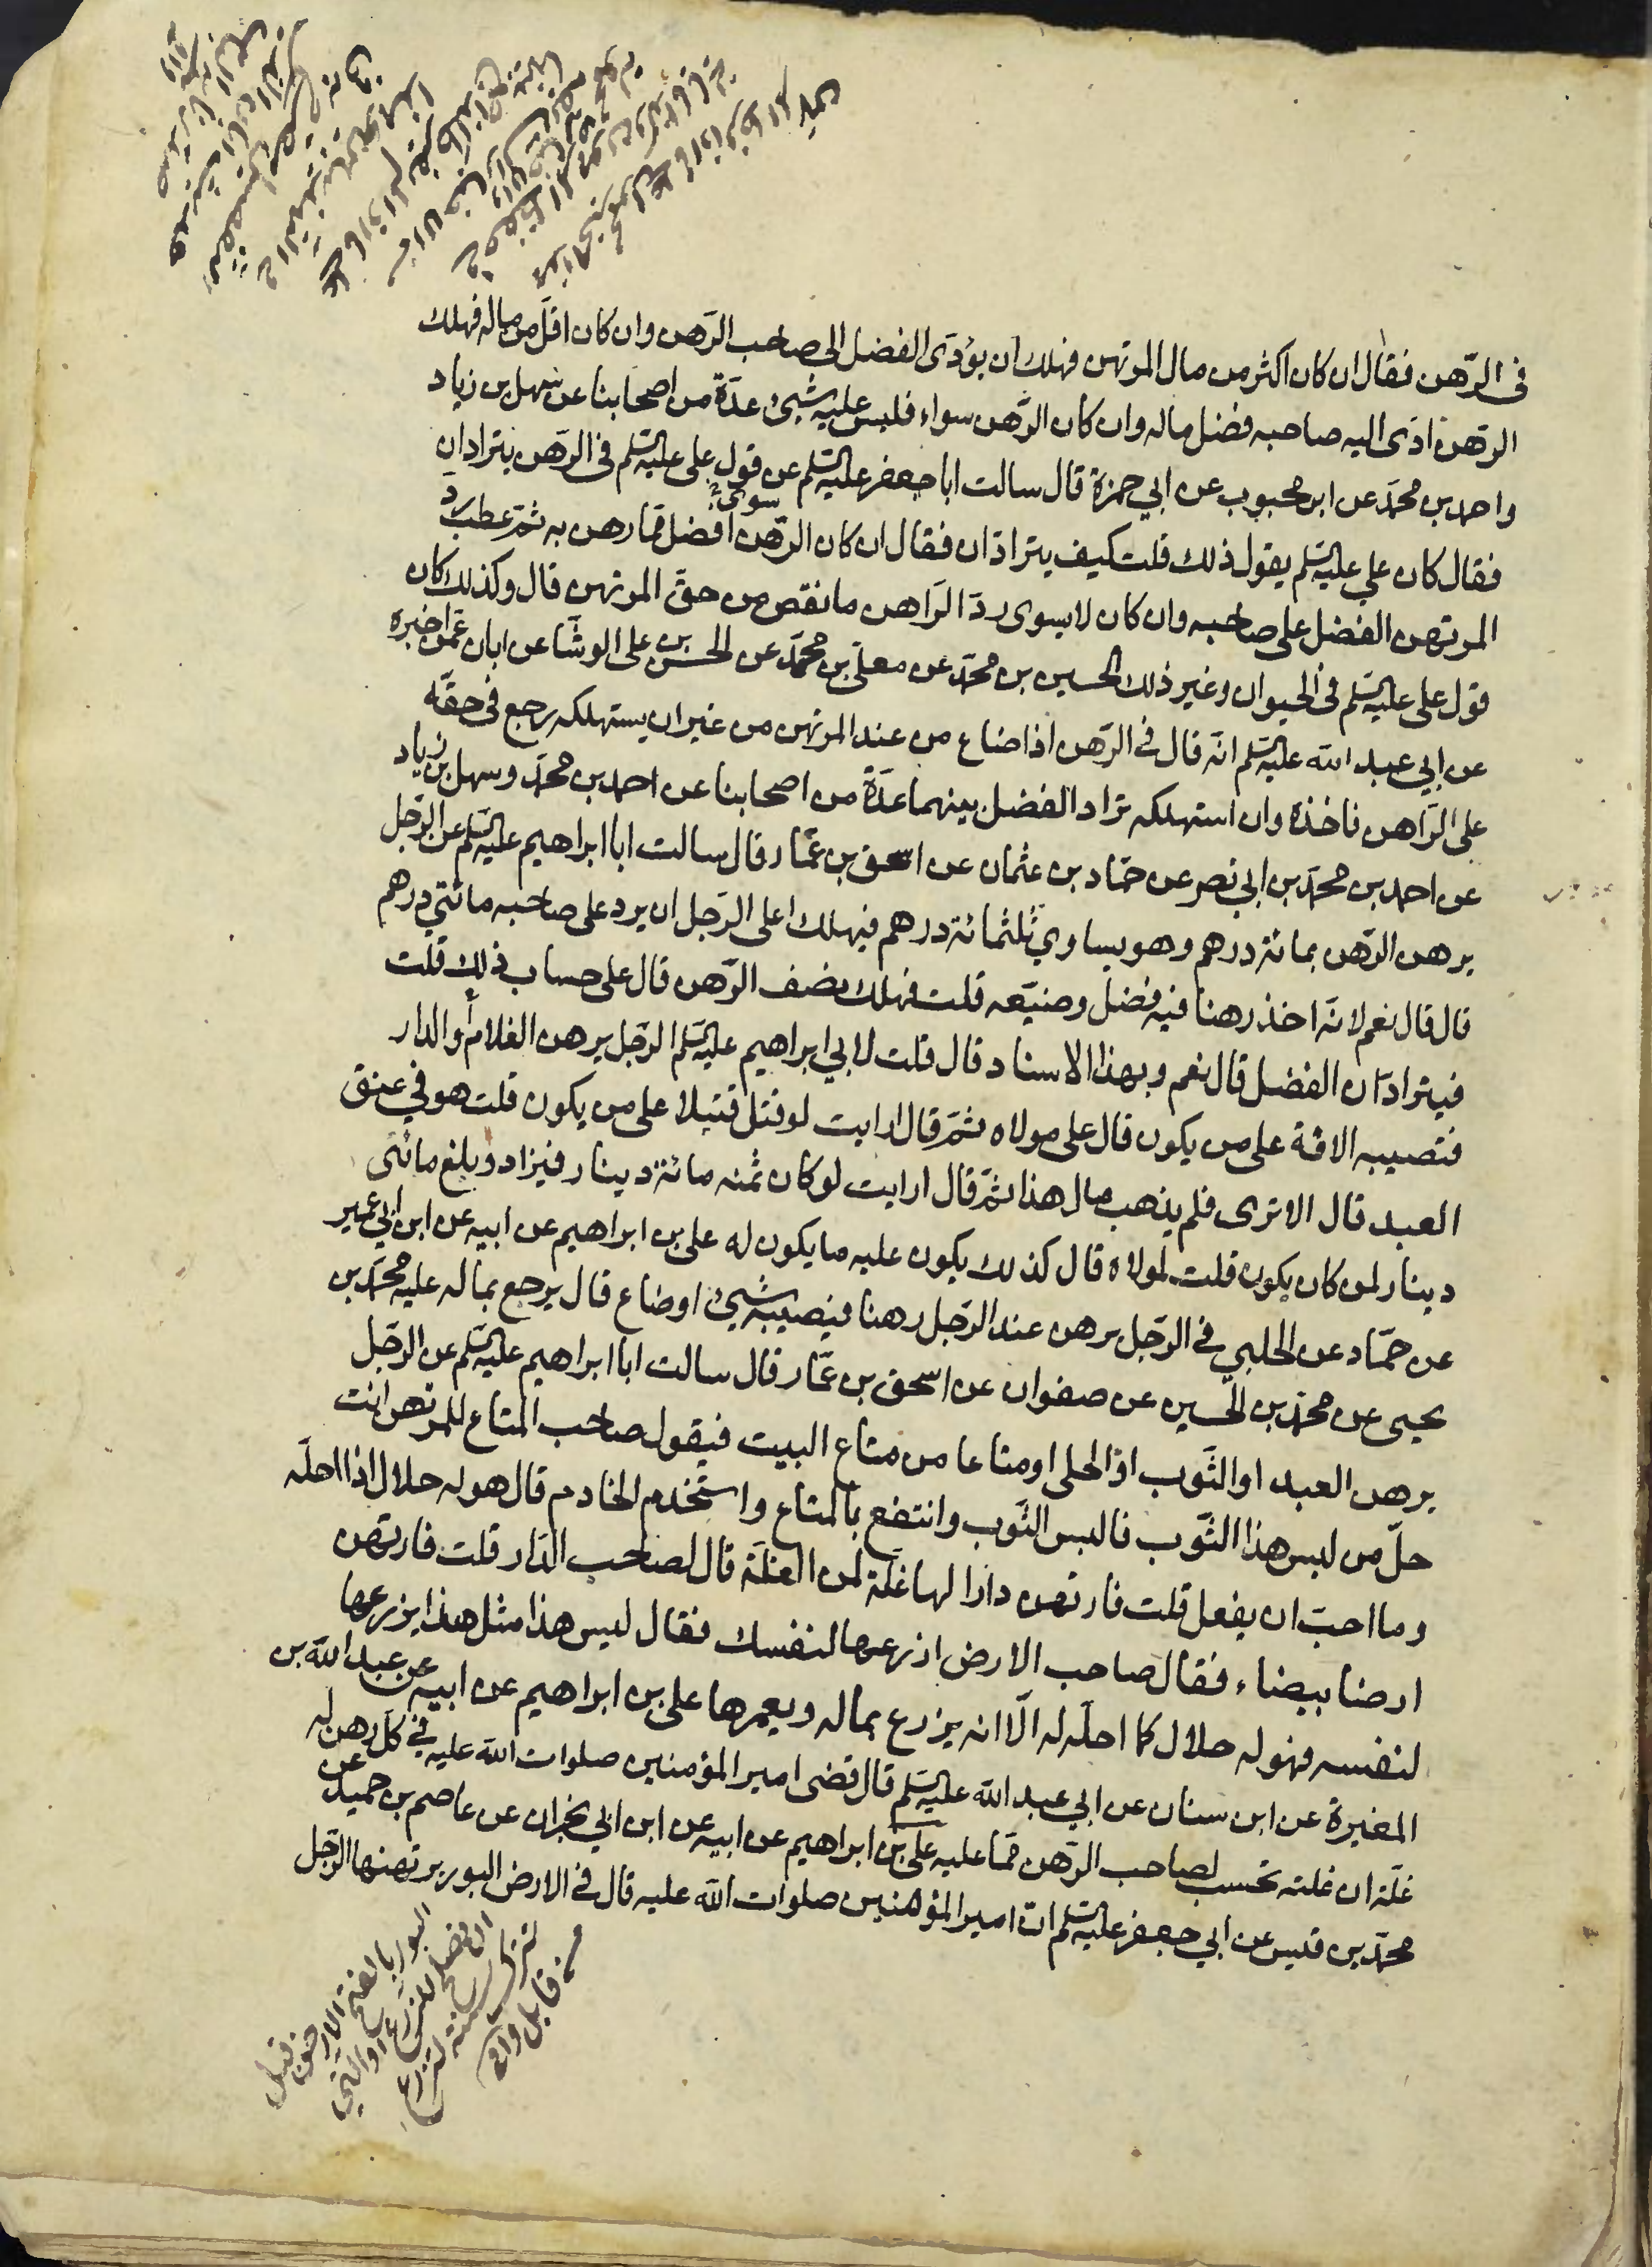 فى الرّهن فقال ان كان اكثر من مال المرتهن فهلك ان يؤدّى الفضل الى صاحب الرّهن وان كان اقلّ من ماله فهلك
الرّهن ادّى اليه صاحبه فضل ماله وان كان الرّهن سواء فليس عليه شىء عدّة من اصحابنا عن سهل بن زياد
واحمد بن محمّد عن ابن محبوب عن ابي حمزة قال سالت ابا جعفر عليه السّلم عن قول على عليه السّلم فى الرّهن يترادان
فقال كان علي عليه السّلم يقول ذلك قلت كيف يترادّان فقال ان كان الرّهن افضل ممّا رهن به ثمّ عطب ردّ
المرتهن الفضل على صاحبه وان كان لا يسوى ردّ الرّاهن ما نقص من حقّ المرتهن قال وكذلك كان
قول على عليه السّلم فى الحيوان وغير ذلك الحسين بن محمّد عن معلى بن محمّد عن الحسن بن على الوشّا عن ابان عمّن اخبره
عن ابي عبد الله عليه السّلم انّه قال فى الرّهن اذا ضاع من عند المرتهن من غير ان يستهلكه رجع فى حقّه
على الرّاهن فاخذه وان استهلكه تراد الفضل بينهما عدّة من اصحابنا عن احمد بن محمّد وسهل بن زياد
عن احمد بن محمّد بن ابي نصر عن حمّاد بن عثمان عن اسحق بن عمّار قال سالت ابا ابراهيم عليه السّلم عن الرّجل
يرهن الرّهن بمائة درهم وهو يساوي ثلثمائة درهم فيهلك اعلى الرّجل ان يرد على صاحبه مائتي درهم
قال قال نعم لانّه اخذ رهنا فيه فضل وضيّعه قلت فهلك نصف الرّهن قال على حساب ذلك قلت
فيترادّان الفضل قال نعم وبهذا الاسناد قال قلت لابي ابراهيم عليه السّلم الرّجل يرهن الغلام أو الدار
فتصيبه الافة على من يكون قال على مولاه ثمّ قال ارايت لو قتل قتيلا على من يكون قلت هو في عنق
العبد قال الا ترى فلم يذهب مال هذا ثمّ قال ارايت لو كان ثمنه مائة دينار فيزاد وبلغ مائتى
دينار لمن كان يكون قلت لمولاه قال كذلك يكون عليه ما يكون له على بن ابراهيم عن ابيه عن ابن ابي عمير
عن حمّاد عن الحلبي فى الرّجل يرهن عند الرّجل رهنا فيصيبه شىء او ضاع قال يرجع بماله عليه محمّد بن
يحيى عن محمّد بن الحسين عن صفوان عن اسحق بن عمّار قال سالت ابا ابراهيم عليه السّلم عن الرّجل
يرهن العبد او الثّوب او الحلى او متاعا من متاع البيت فيقول صاحب المتاع للمرتهن انت
حلّ من لبس هذا الثّوب فالبس الثّوب وانتفع بالمتاع واستخدم الخادم قال هو له حلال اذا احلّه
وما احبّ ان يفعل قلت فارتهن دارا لها غلّة لمن الغلّة قال لصاحب الدّار قلت فارتهن
ارضا بيضاء فقال صاحب الارض ازرعها لنفسك فقال ليس هذا مثل هذا يزرعها
لنفسه فهو له حلال كما احلّه له الّا انه يزرع بماله ويعمرها على بن ابراهيم عن ابيه عن عبد الله بن
المغيرة عن ابن سنان عن ابي عبد الله عليه السّلم قال قضى امير المؤمنين صلوات الله عليه في كلّ رهن له
غلّة ان غلته تحسب لصاحب الرّهن ممّا عليه على بن ابراهيم عن ابيه عن ابن ابي نجران عن عاصم بن حميد عن
محمّد بن قيس عن ابي جعفر عليه السّلم انّ امير المؤمنين صلوات الله عليه قال فى الارض البور يرتهنها الرّجل
البور بالفتح الارض قبل
ان تصلح للزرع او التي